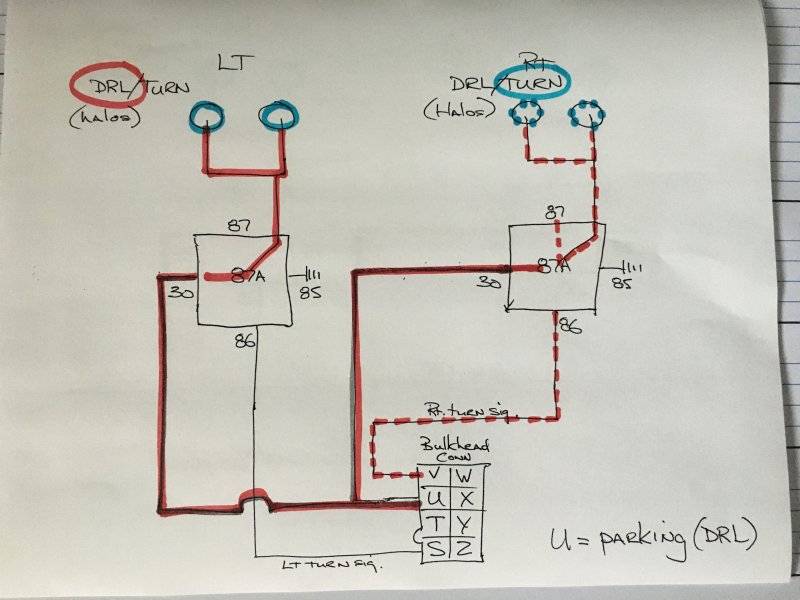 LT
DRL/TURN
(halos)
RT
DRL/TURN
(Halos)
87
87A
30
85
86
87
87A
30
85
86
Rt. turn sig.
Bulkhead
CONN
V W
U X
T Y
S Z
LT TURN SIG.
U = PARKING (DRL)